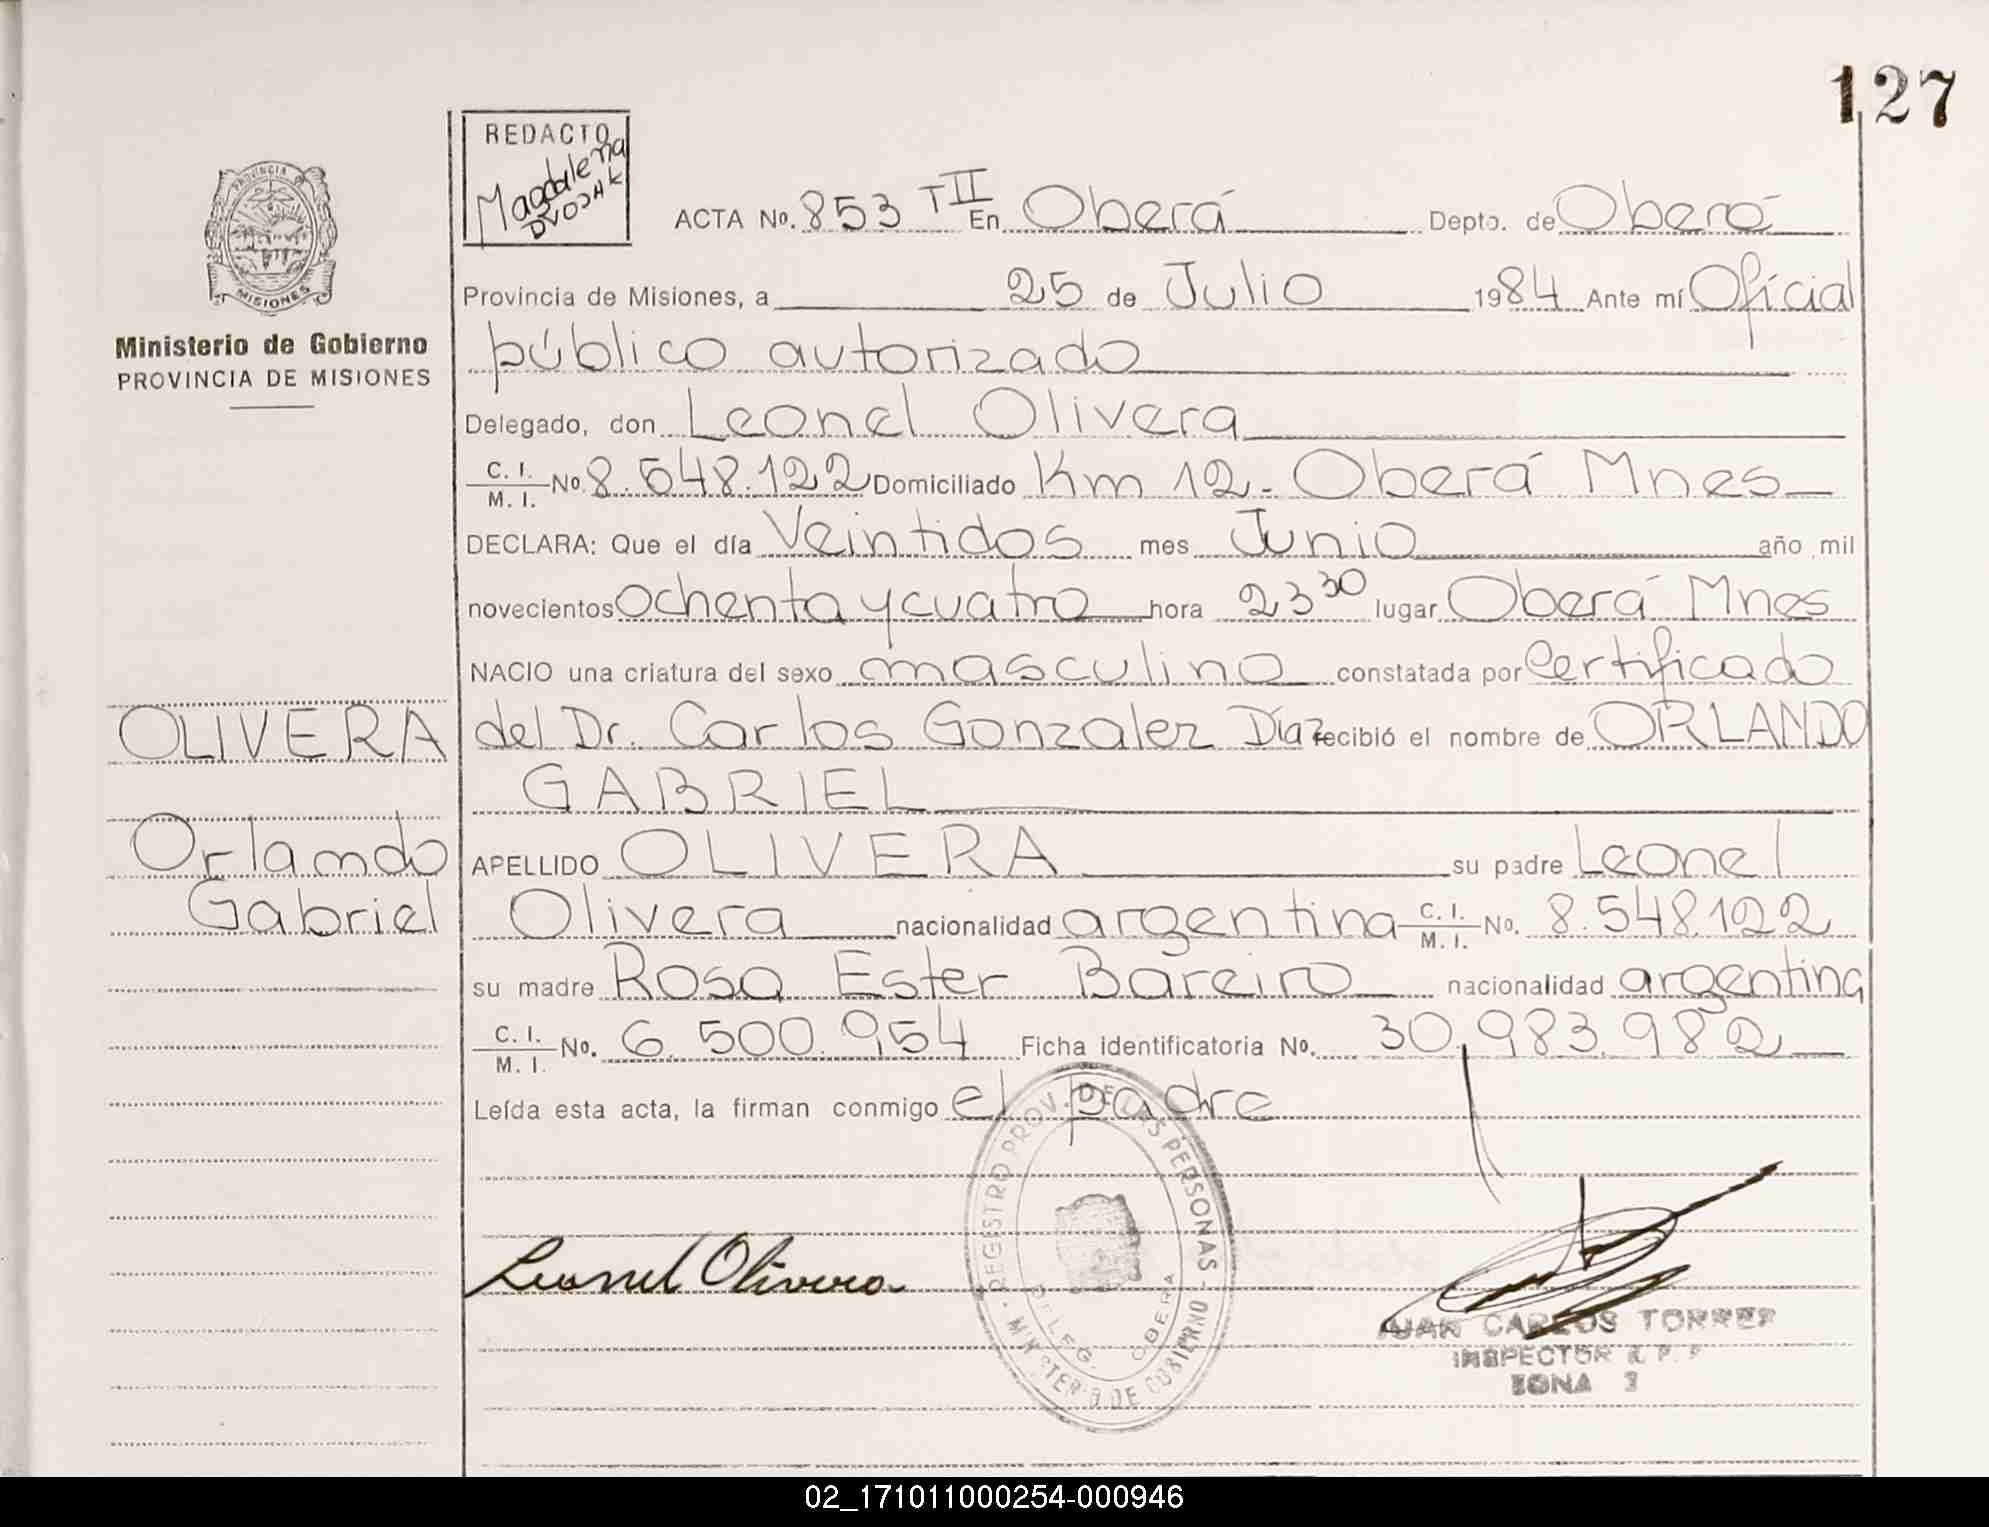 127
REDACTO
Magdalena
DVOJAK
PROVINCIA DE
MISIONES
Ministerio de Gobierno
PROVINCIA DE MISIONES
ACTA No. 853 TII En Oberá Depto. de Oberá
Provincia de Misiones, a 25 de Julio 1984 Ante mí Oficial
público autorizado
Delegado, don Leonel Olivera
C. I. M. I. No. 8.548.122 Domiciliado Km 12 - Oberá Mnes
DECLARA: Que el día Veintidos mes Junio año mil
novecientos ochenta y cuatro hora 23 30 lugar Oberá Mnes
NACIO una criatura del sexo masculino constatada por Certificado
del Dr. Carlos Gonzalez Díaz recibió el nombre de ORLANDO
GABRIEL
APELLIDO OLIVERA su padre Leonel
Olivera nacionalidad argentina C. I. M. I. No. 8.548.122
su madre Rosa Ester Bareiro nacionalidad argentina
C. I. M. I. No. 6.500.954 Ficha identificatoria No. 30.983.982
Leída esta acta, la firman conmigo el padre
OLIVERA
Orlando
Gabriel
Leonel Olivera
REGISTRO PROV. DE LAS PERSONAS - MINISTERIO DE GOBIERNO -
DELEG. OBERA
JUAN CARLOS TORRES
INSPECTOR R. P. P
ZONA 3
02_171011000254-000946